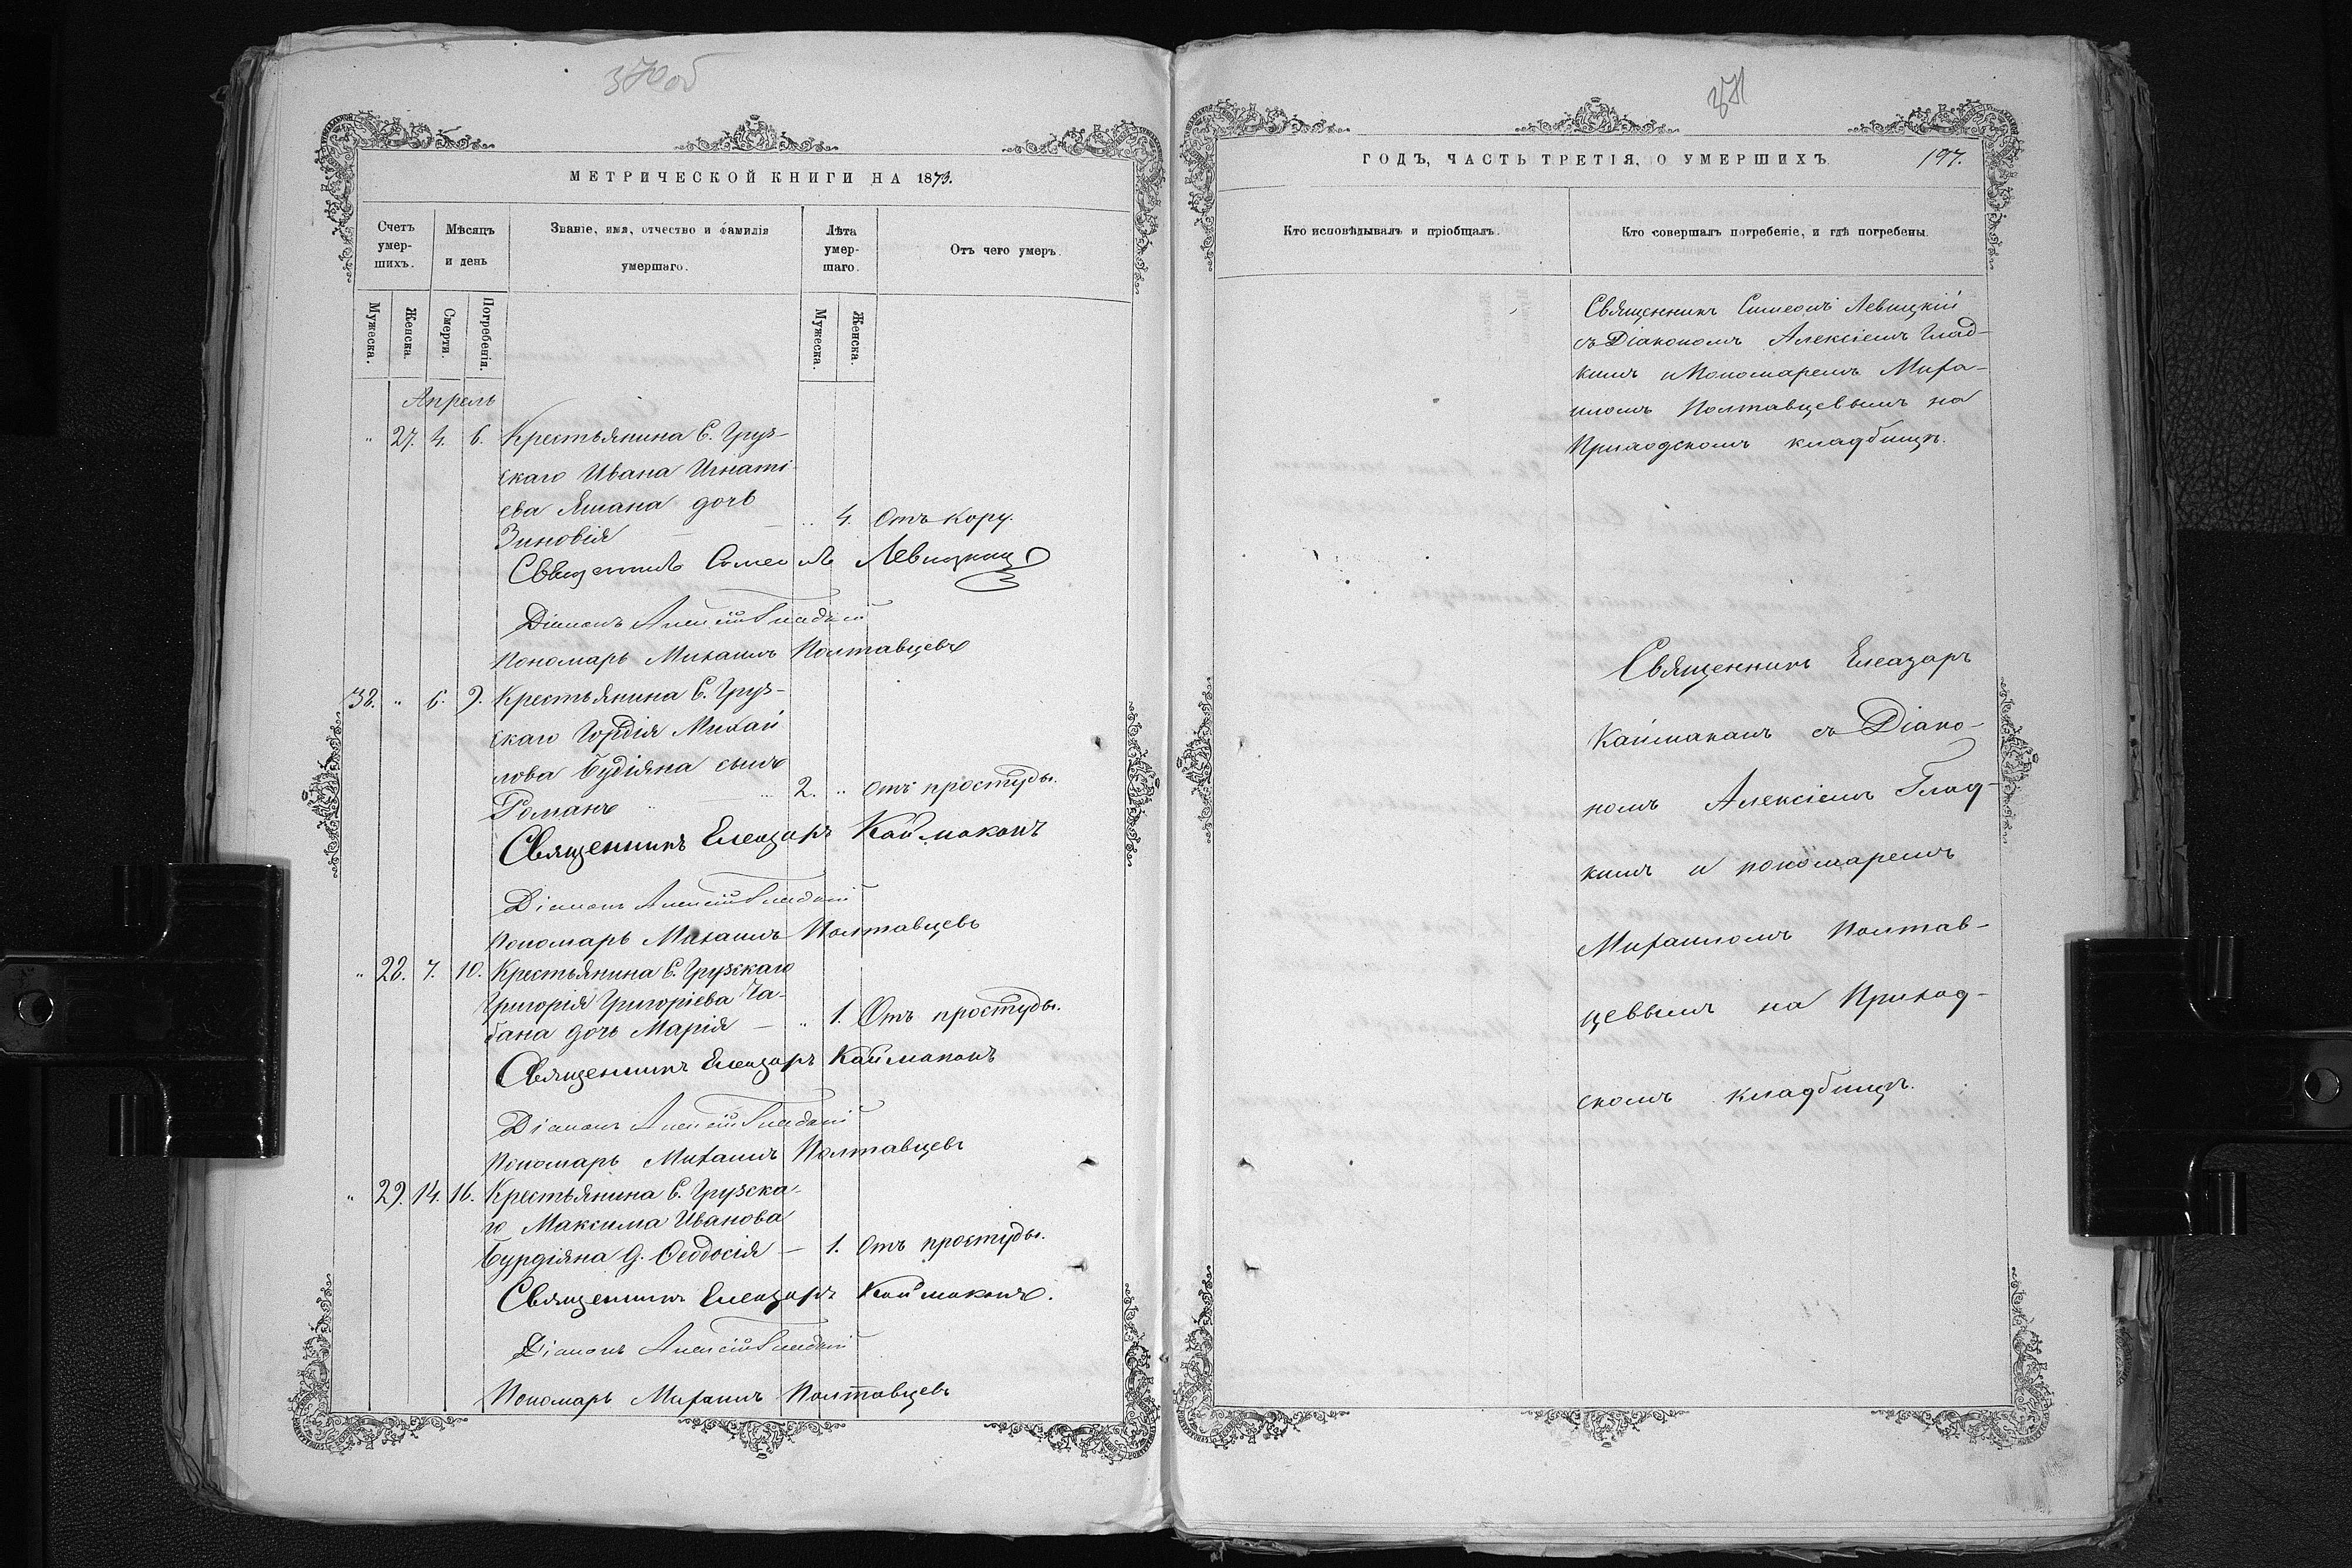 370об
МЕТРИЧЕСКОЙ КНИГИ НА 1873.
Счетъ умер-шихъ.
Мѣсяцъ и день
Званіе, имя, отчество и фамилія умершаго.
Лѣта умер-шаго.
Отъ чего умеръ.
Мужеска.
Женска.
Смерти.
Погребенія.
Мужеска.
Женска.
Апрель
" 27. 4. 6. Крестьянина С. Груз-
скаго Ивана Игнаті
ева Ямана дочь
Зиновія " 4. Отъ кору.
Священникъ Симеонъ Левицкій
Діаконъ Алексій Гладкій
Пономарь Михаилъ Полтавцевъ
38. " 6. 9. Крестьянина С. Груз-
скаго Гордія Михай
лова Будіяна сынъ
Романъ 2. " отъ простуды.
Священникъ Елеазаръ Каймаканъ
Діаконъ Алексій Гладкій
Пономарь Михаилъ Полтавцевъ
" 28. 7. 10. Крестьянина С. Грузскаго
Григорія Григоріева Ча-
бана дочь Марія — " 1. Отъ простуды.
Священникъ Елеазаръ Каймаканъ
Діаконъ Алексій Гладкій
Пономарь Михаилъ Полтавцевъ
" 29. 14. 16. Крестьянина С. Грузска-
го Максима Иванова
Бурдіяна д. Ѳеодосія — 1. Отъ простуды.
Священникъ Елеазаръ Каймаканъ.
Діаконъ Алексій Гладкій
Пономарь Михаилъ Полтавцевъ
371
ГОДЪ, ЧАСТЬ ТРЕТІЯ, О УМЕРШИХЪ.
197.
Кто исповѣдывалъ и пріобщалъ.
Кто совершалъ погребеніе, и гдѣ погребены.
Священникъ Симеонъ Левицкій
съ Діакономъ Алексіемъ Глад-
кимъ и Пономаремъ Миха-
иломъ Полтавцевымъ на
Приходскомъ кладбищѣ.
Священникъ Елеазаръ
Каймаканъ съ Діако-
номъ Алексіемъ Глад-
кимъ и пономаремъ
Михаиломъ Полтав-
цевымъ на Приход-
скомъ кладбищѣ.